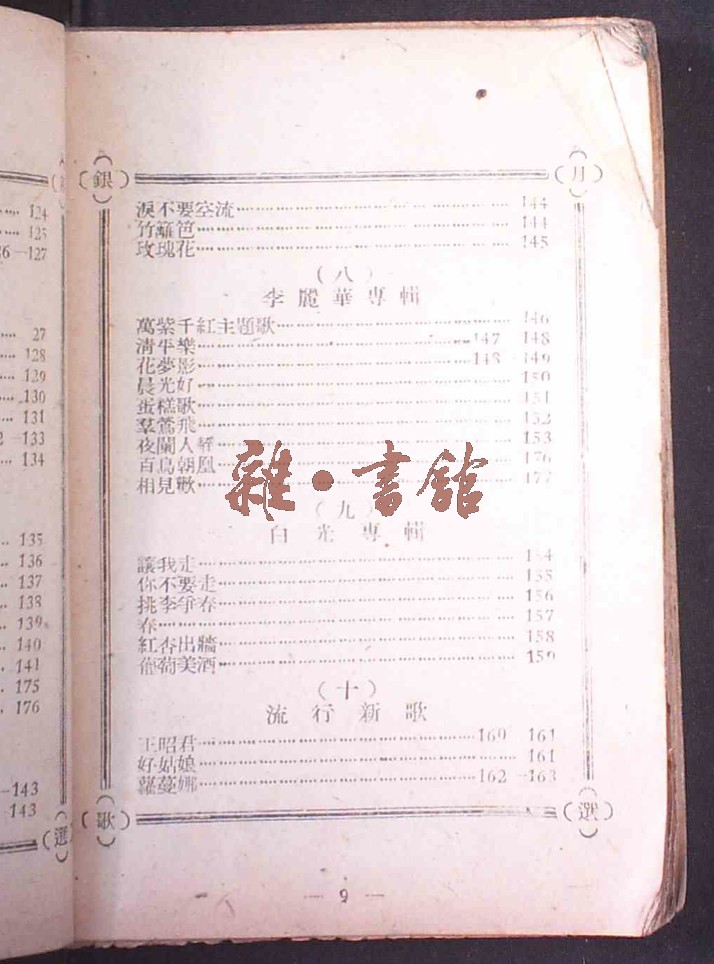 124
125
6—127
27
128
129
130
131
2 —133
134
135
136
137
138
139
140
141
175
176
—143
—143
選
銀 月
淚不要空流 144
竹籬笆 144
玫瑰花 145
（八）
李麗華專輯
萬紫千紅主題歌 146
清平樂 147 148
花夢影 148—149
晨光好 150
蛋糕歌 151
羣鶯飛 152
夜闌人靜 153
百鳥朝凰 176
相見歡 177
雜·書館
（九）
白光專輯
讓我走 154
你不要走 155
桃李爭春 156
春 157
紅杏出牆 158
葡萄美酒 159
（十）
流行新歌
王昭君 160 161
好姑娘 161
蘿蔓娜 162 —163
歌 選
— 9 —